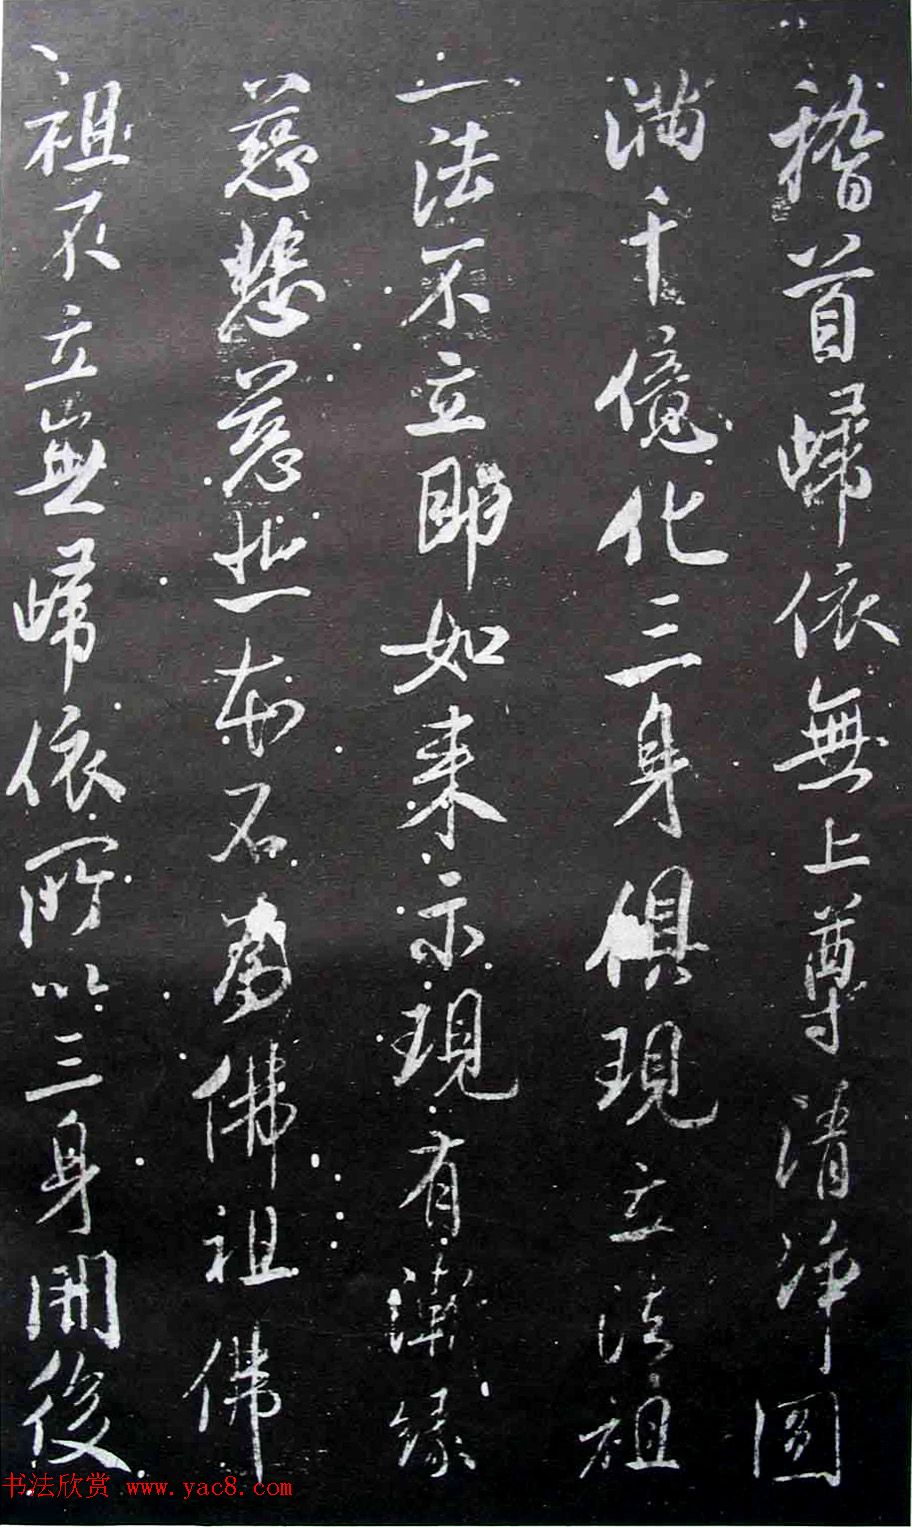 稽首歸依無上尊清淨圓
滿千億化三身俱現立法祖
一法不立即如来示現有漸緣
慈悲本為佛祖佛
祖不立無歸依所以三身開後
书法欣赏 www.yac8.com